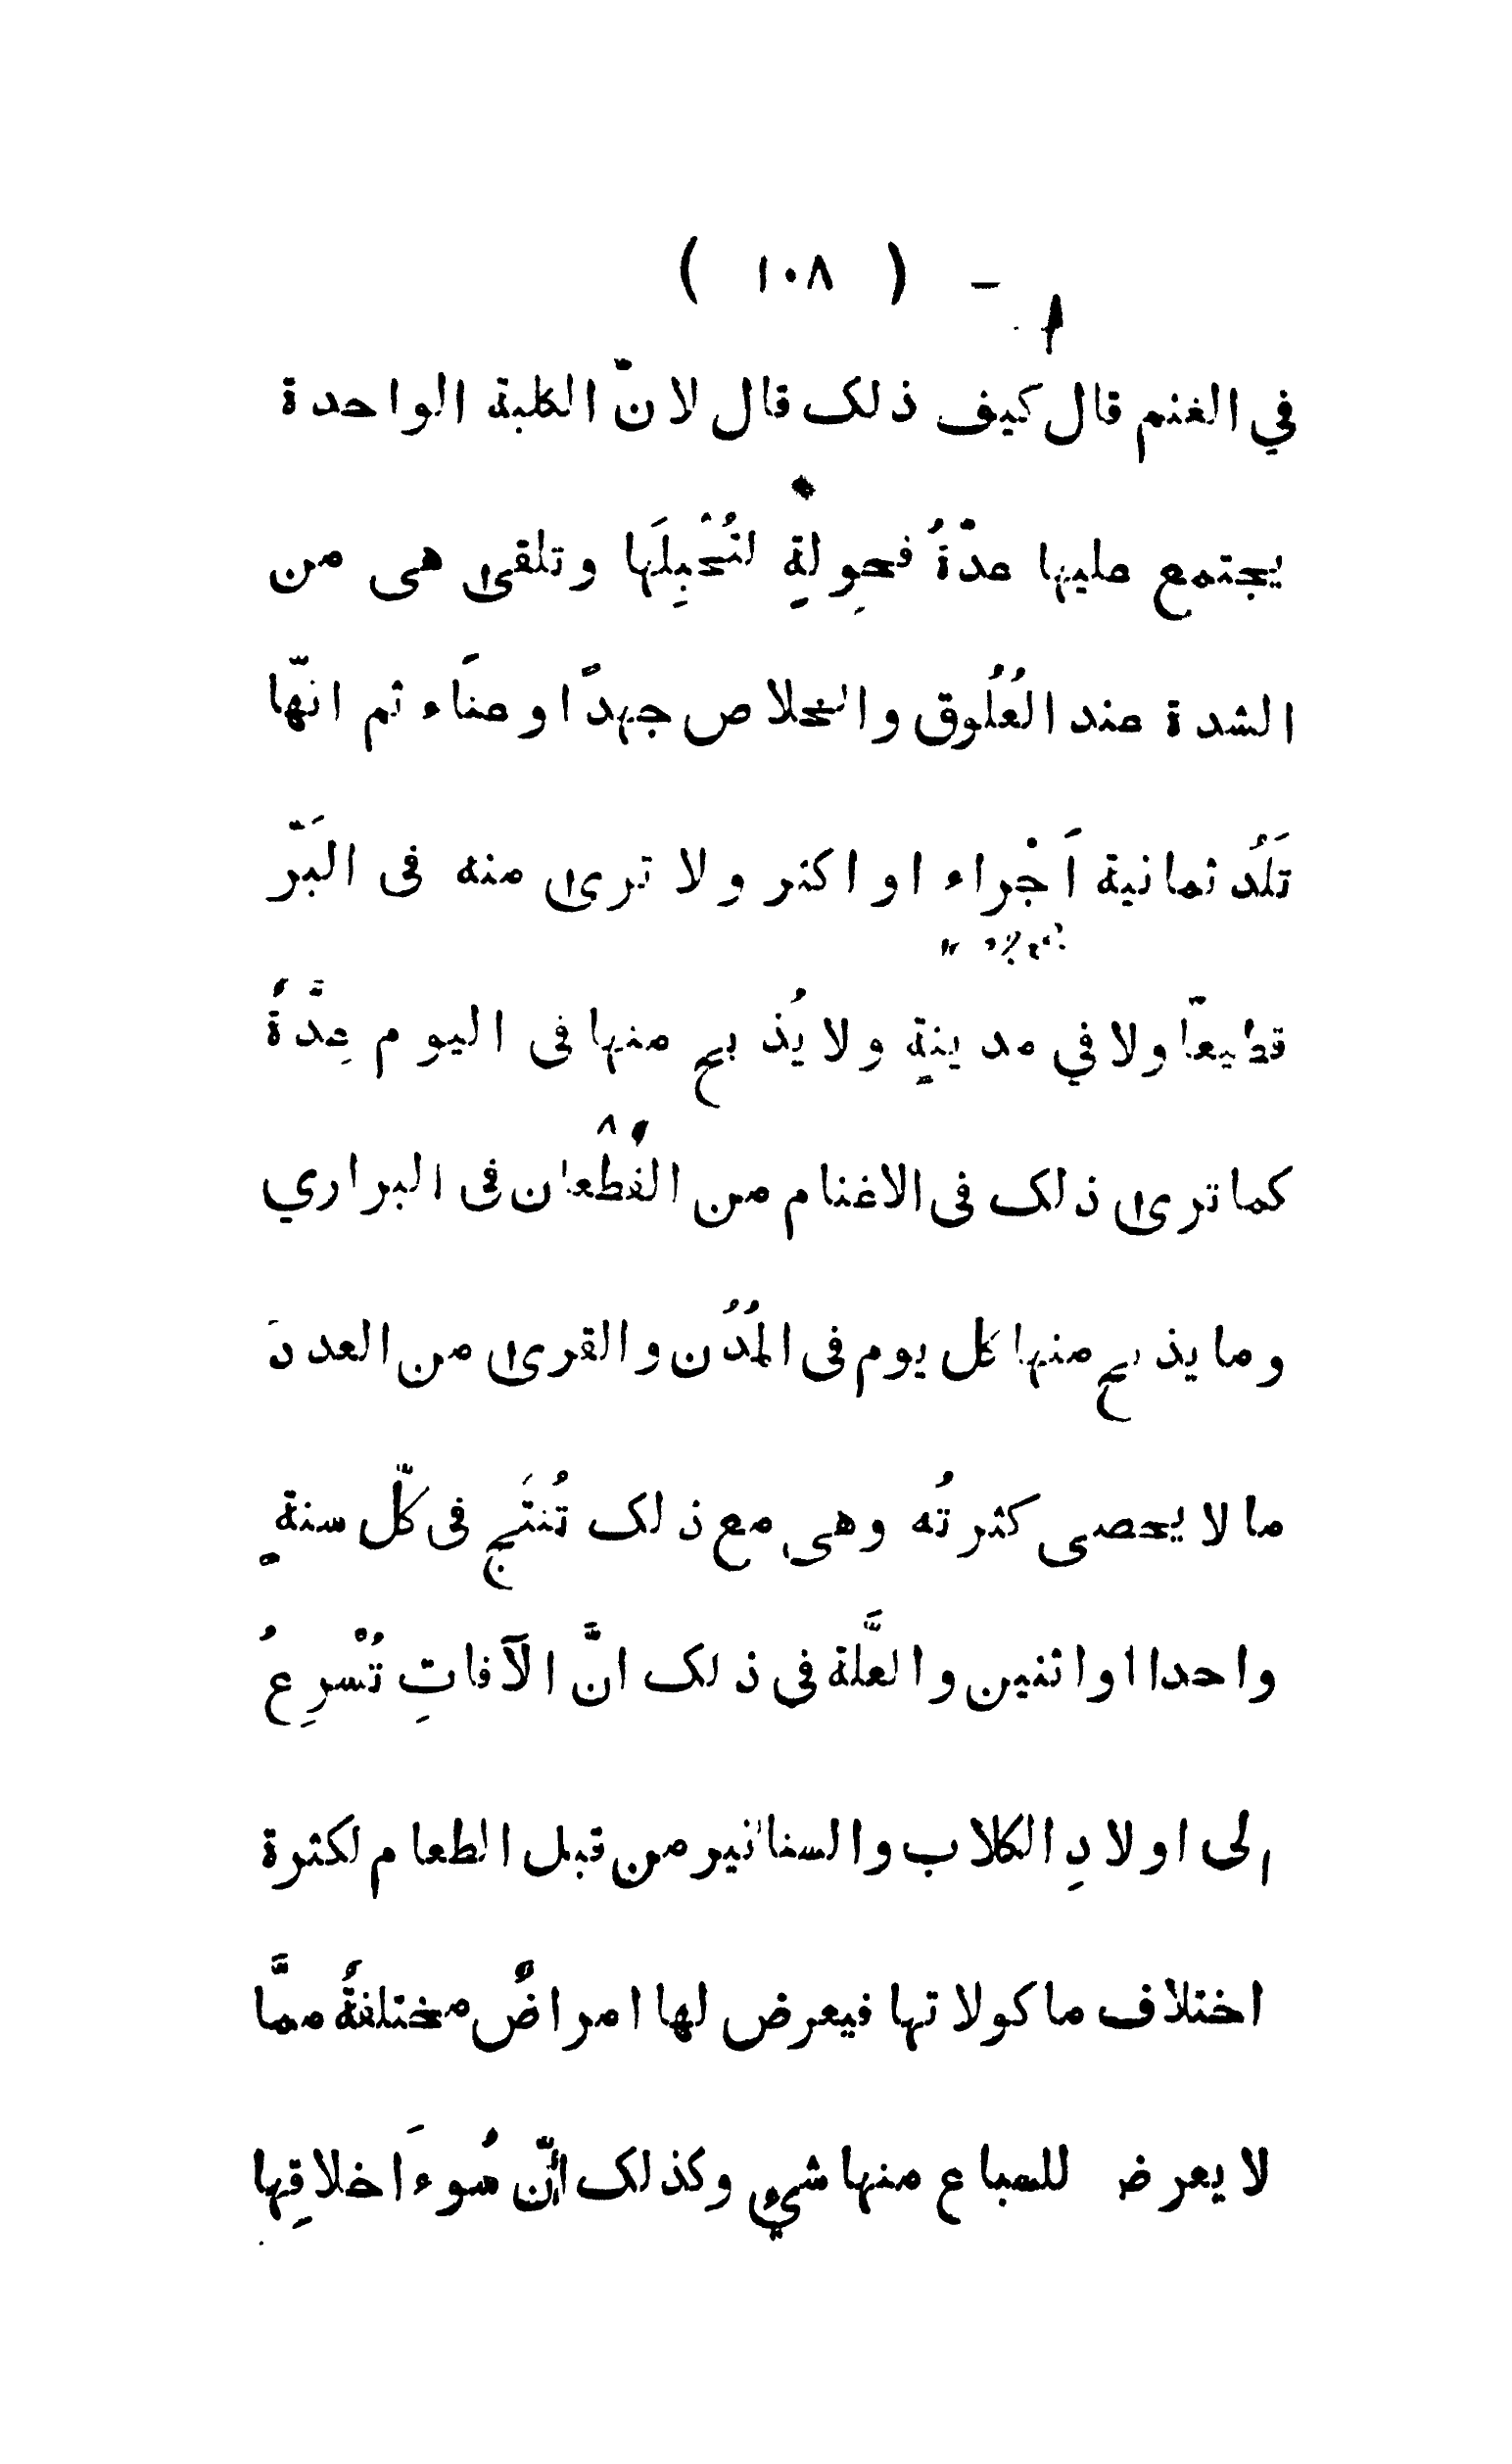 ( ١٠٨ ) –
في الغنم قال كيف ذلك قال لانّ الكلبة الواحدة
يجتمع عليها عدّةُ فحولةٍ لتُحْبِلَها وتلقى هى من
الشدة عند العُلُوق والخلاص جهدًا وعنَاء ثم انّها
تَلُد ثمانية اَجْراء او اكثر ولا ترى منه فى البَرّ
قطيعًا ولا في مدينةٍ ولا يُذبح منها فى اليوم عِدَّةً
كما ترى ذلك فى الاغنام من القُطْعان فى البراري
وما يذبح منها كل يوم فى المُدُن والقرى من العدد
ما لا يحصى كثرتُه وهى مع ذلك تُنتَج فى كلّ سنةٍ
واحدا او اثنين والعلَّة في ذلك انَّ الآفاتِ تُسْرِعُ
الى اولادِ الكلاب والسنانير من قبل الطعام لكثرة
اختلاف ماكولاتها فيعرض لها امراضٌ مختلفةٌ ممَّا
لا يعرض للسباع منها شيءٍ وكذلك انّ سُوءَ اخلاقِها